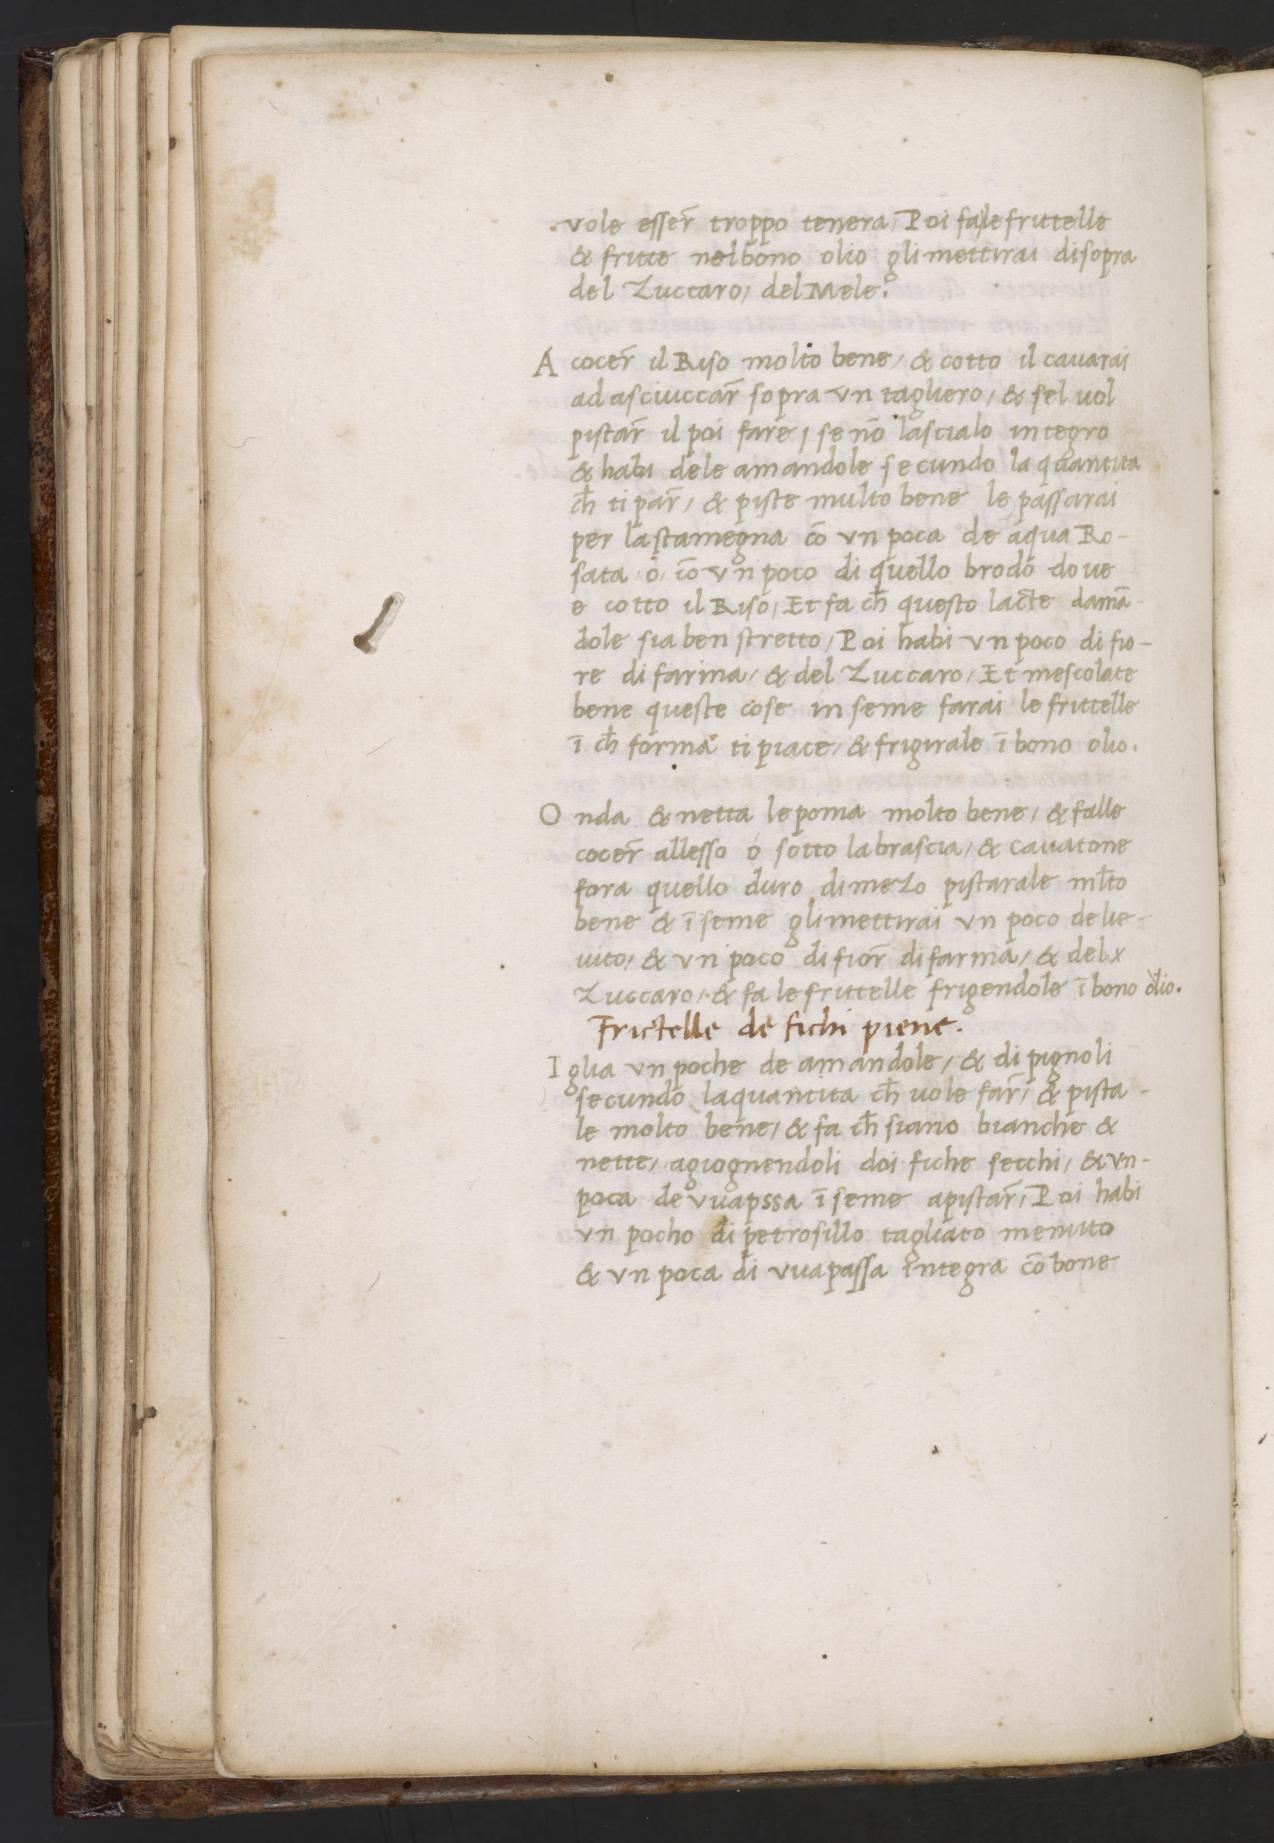 vole esser̄ troppo tenera Poi fa le frittelle
& fritte nel bono olio gli mettirai disopra
del Zuccaro, del Mele.
A cocer̄ il Riso molto bene, & cotto il cavarai
ad asciuccar̄ sopra vn tagliero, & sel uol
pistar̄ il poi fare, se nō lascialo integro
& habi dele amandole secundo la quantita
ch̄ ti par̄, & piste multo bene le passarai
per la stamegna cō vn poca de aqua Ro-
sata, ó, cō vn poco di quello brodo dove
e cotto il Riso, Et fa ch̄ questo lacte damā-
dole sia ben stretto, Poi habi vn poco di fio-
re di farina, & del Zuccaro, Et mescolate
bene queste cose inseme farai le frittelle
ī ch̄ forma ti piace, & frigirale ī bono olio.
O nda & netta le poma molto bene, & falle
cocer̄ allesso ó sotto la brascia, & cavatone
fora quello duro di mezo pistarale mlto
bene & īseme gli mettirai vn poco de lie-
uito, & vn poco di fior̄ di farina, & del
Zuccaro, & fa le frittelle frigendole ī bono olio.
Frictelle de fichi piene.
I glia vn poche de amandole, & di pignoli
secundo la quantita ch̄ uole far̄, & pista-
le molto bene, & fa ch̄ siano bianche &
nette, agiognendoli doi fiche secchi, & vn-
poca de vua pssa īseme a pistar̄, Poi habi
vn pocho di petrosillo tagliato menuto
& vn poca di vua passa integra cō bone